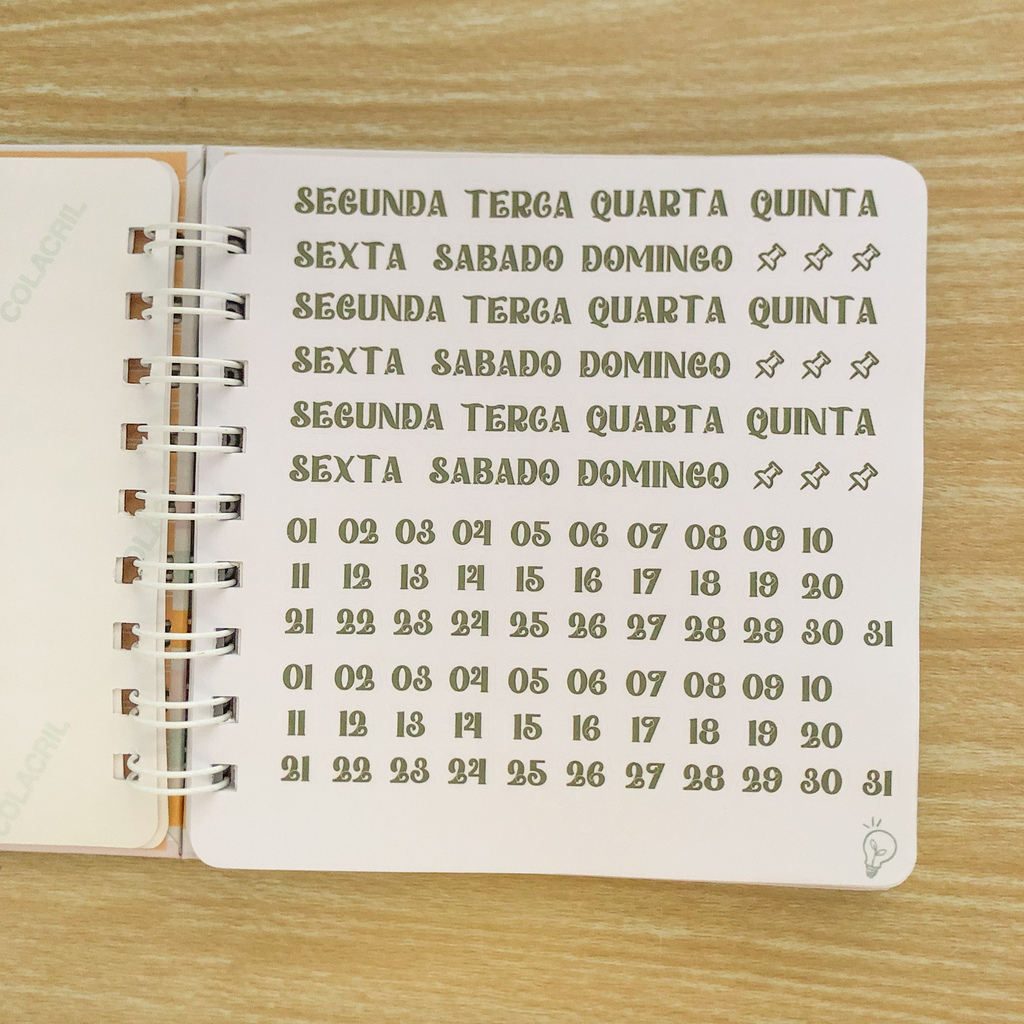 COLACRIL
COLA
COLACRIL
SEGUNDA TERCA QUARTA QUINTA
SEXTA SABADO DOMINGO
SEGUNDA TERCA QUARTA QUINTA
SEXTA SABADO DOMINGO
SEGUNDA TERCA QUARTA QUINTA
SEXTA SABADO DOMINGO
01 02 03 04 05 06 07 08 09 10
11 12 13 14 15 16 17 18 19 20
21 22 23 24 25 26 27 28 29 30 31
01 02 03 04 05 06 07 08 09 10
11 12 13 14 15 16 17 18 19 20
21 22 23 24 25 26 27 28 29 30 31